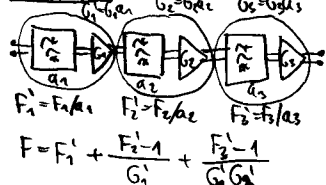 G₁'=G₁a₁ G₂'=G₂a₂ G₃'=G₃a₃
G₁ G₂ G₃
a₁ a₂ a₃
F₁'=F₁/a₁ F₂'=F₂/a₂ F₃'=F₃/a₃
F=F₁' + F₂'-1/G₁' + F₃'-1/G₁'G₂'